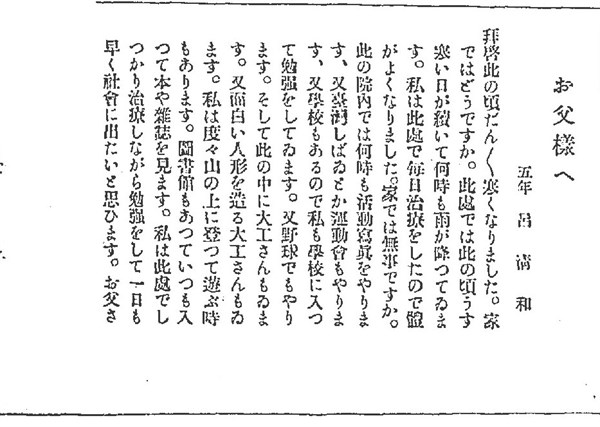 お父樣へ
五年 呂淸和
拜啓此の頃だん〱寒くなりました。家
ではどうですか。此處では此の頃うす
寒い日が續いて何時も雨が降つてゐま
す。私は此處で每日治療をしたので體
がよくなりました。家では無事ですか。
此の院內では何時も活動寫眞をやりま
す、又臺灣しばゐとか運動會もやりま
す、又學校もあるので私も學校に入つ
て勉强をしてゐます。又野球でもやり
ます。そして此の中に大工さんもゐま
す。又面白い人形を造る大工さんもゐ
ます。私は度々山の上に登つて遊ぶ時
もあります。圖書館もあつていつも入
つて本や雜誌を見ます。私は此處でし
つかり治療しながら勉强をして一日も
早く社會に出たいと思ひます。お父さ